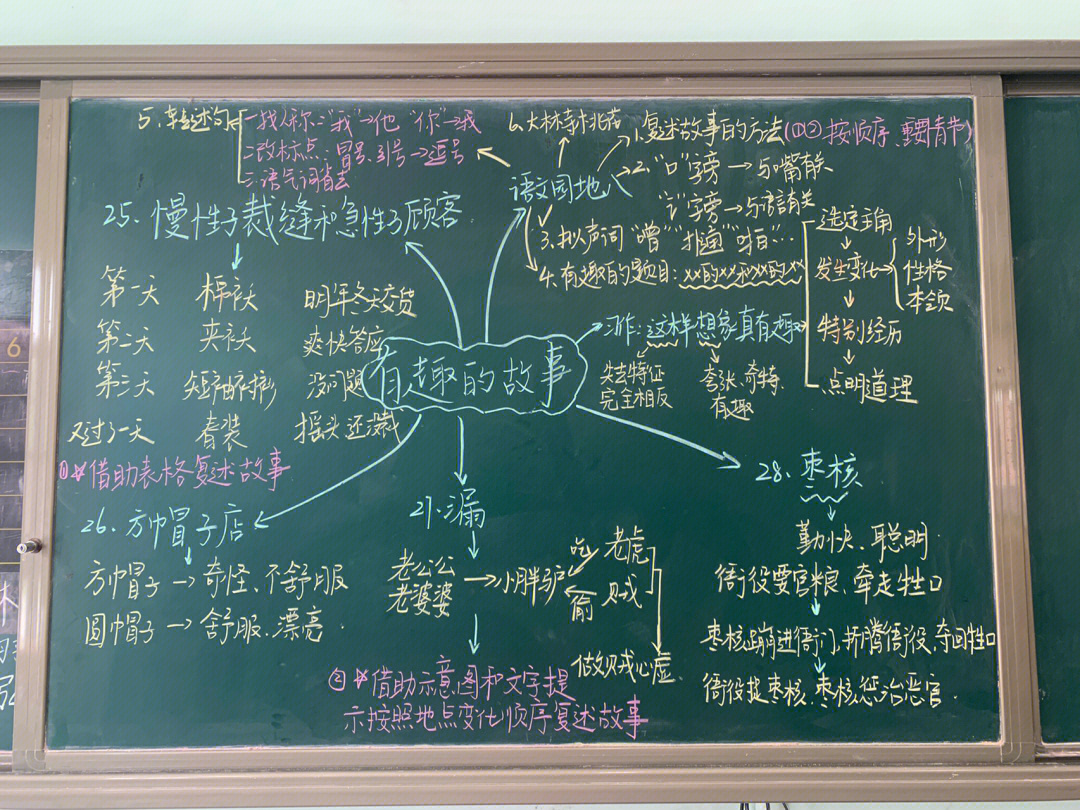 5. 转述句
一找人称:"我"→他 "你"→我
二改标点:冒号、引号→逗号
三语气词省去
6. 大林寺桃花
语文园地
1. 复述故事的方法(①② 按顺序、重要情节)
2. "口"字旁→与嘴有关
"讠"字旁→与语言有关
3. 拟声词"噌""扑通""啪"…
4. 有趣的题目:××的××和××的××
25. 慢性子裁缝和急性子顾客
第一天 棉袄 明年冬天交货
第二天 夹袄 爽快答应
第三天 短袖衬衫 没问题
又过了一天 春装 摇头还没裁
①借助表格复述故事
有趣的故事
习作:这样想象真有趣
失去特征
完全相反
夸张、奇特、
有趣
选定主角
发生变化
外形
性格
本领
特别经历
点明道理
26. 方帽子店
方帽子→奇怪、不舒服
圆帽子→舒服、漂亮
27. 漏
老公公
老婆婆
小胖驴
吃 老虎
偷 贼
做贼心虚
②借助示意图和文字提
示按照地点变化顺序复述故事
28. 枣核
勤快、聪明
衙役要官粮、牵走牲口
枣核蹦进衙门,折腾衙役、夺回牲口
衙役捉枣核、枣核惩治恶官
6